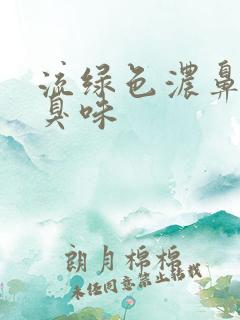 流绿色浓鼻
臭味
朗月棉棉
未经同意禁止转载